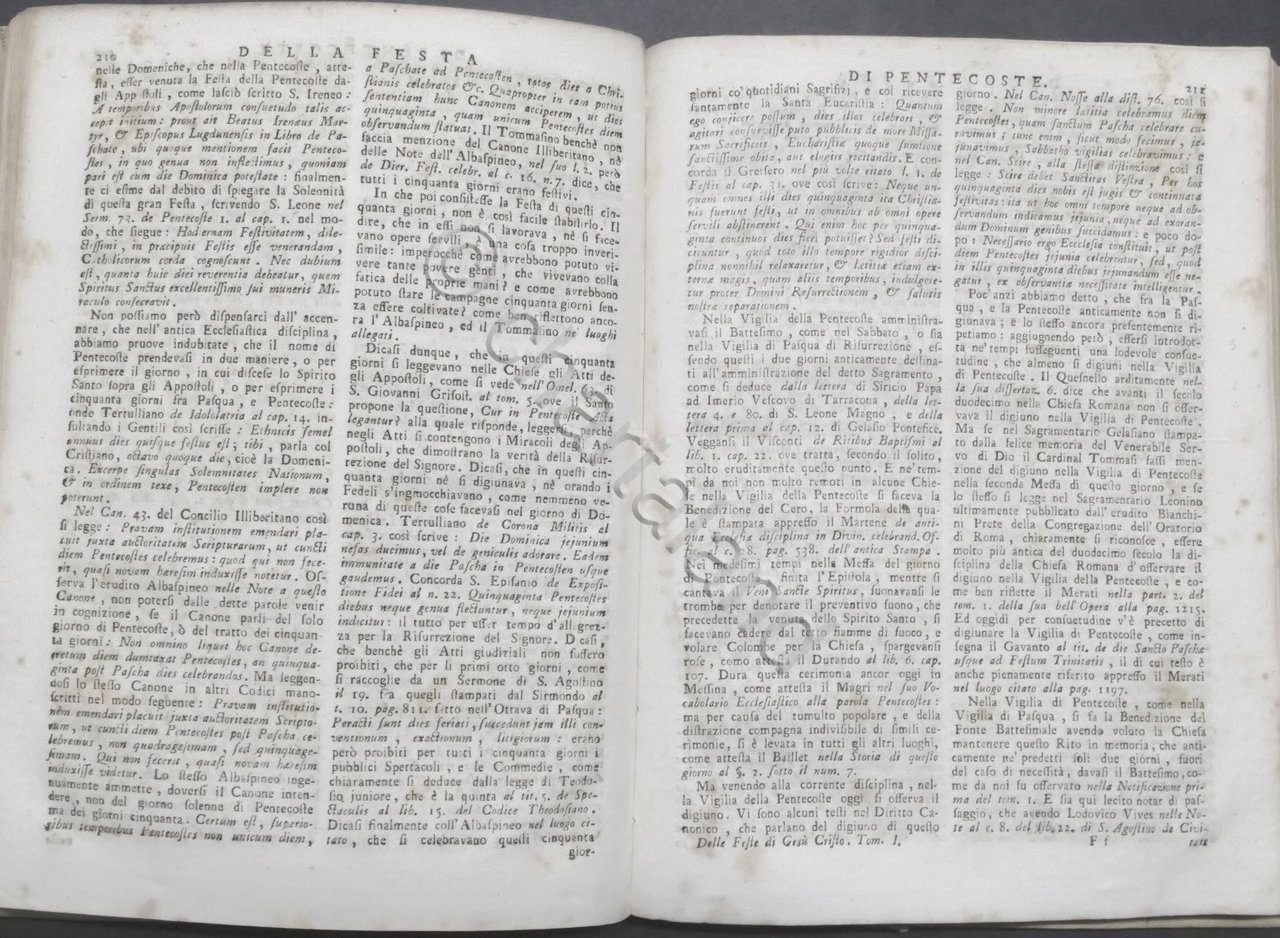 210
DELLA FESTA
nelle Domeniche, che nella Pentecoste, atte-
sta, esser venuta la Festa della Pentecoste da-
gli App stoli, come lasciò scritto S. Ireneo:
A temporibus Apostolorum consuetudo talis ac-
cepit initium: prout ait Beatus Irenæus Mar-
tyr, & Episcopus Lugdunensis in Libro de Pa-
schate, ubi quoque mentionem facit Penteco-
stes, in quo genua non inflectimus, quoniam
pari est cum die Dominica potestate: finalmen-
te ci esime dal debito di spiegare la Solennità
di questa gran Festa, scrivendo S. Leone nel
Serm. 73. de Pentecoste 1. al cap. 1. nel mo-
do, che siegue: Hodiernam Festivitatem, dile-
ctissimi, in præcipuis Festis esse venerandam,
Catholicorum corda cognoscunt. Nec dubium
est, quanta huic diei reverentia debeatur, quem
Spiritus Sanctus excellentissimo sui muneris Mi-
raculo consecravit.
Non possiamo però dispensarci dall' accen-
nare, che nell'antica Ecclesiastica disciplina,
abbiamo pruove indubitate, che il nome di
Pentecoste prendevasi in due maniere, o per
esprimere il giorno, in cui discese lo Spirito
Santo sopra gli Appostoli, o per esprimere i
cinquanta giorni fra Pasqua, e Pentecoste:
onde Tertulliano de Idololatria al cap. 14. in-
sultando i Gentili così scrisse: Ethnicis semel
annuus dies quisque festus est; tibi, parla col
Cristiano, octavo quoque die, cioè la Domeni-
ca. Excerpe singulas Solemnitates Nationum,
& in ordinem texe, Pentecosten implere non
poterunt.
Nel Can. 43. del Concilio Illiberitano così
si legge: Pravam institutionem emendari pla-
cuit juxta auctoritatem Scripturarum, ut cuncti
diem Pentecostes celebremus: quod qui non fece-
rit, quasi novam hæresim induxisse notetur. Os-
serva l'erudito Albaspineo nelle Note a questo
Canone, non potersi dalle dette parole venir
in cognizione, se il Canone parli del solo
giorno di Pentecoste, ò del tratto dei cinquan-
ta giorni: Non omnino liquet hoc Canone de-
cretum diem dumtaxat Pentecostes, an quinqua-
ginta post Pascha dies celebrandos. Ma leggen-
dosi lo stesso Canone in altri Codici mano-
scritti nel modo seguente: Pravam institutio-
nem emendari placuit juxta auctoritatem Scripto-
rum, ut cuncti diem Pentecostes post Pascha ce-
lebremus, non quadragesimam, sed quinquage-
simam. Qui non fecerit, quasi novam hæresim
induxisse videtur. Lo stesso Albaspineo inge-
nuamente ammette, doversi il Canone inten-
dere, non del giorno solenne di Pentecoste
ma dei giorni cinquanta. Certum est, superio-
ribus temporibus Pentecostes non unicum diem,
a Paschate ad Pentecosten, totos dies a Chri-
stianis celebratos &c. Quapropter in eam potius
sententiam hunc Canonem acciperem, ut dies
quinquaginta, quam unicum Pentecostes diem
observandum statuat. Il Tommasino benchè non
faccia menzione del Canone Illiberitano, nè
delle Note dell'Albaspineo, nel suo l. 2. però
de Dier. Fest. celebr. al c. 16. n. 7. dice, che
tutti i cinquanta giorni erano festivi.
In che poi consistesse la Festa di questi cin-
quanta giorni, non è così facile stabilirlo. Il
dire, che in essi non si lavorava, nè si face-
vano opere servili è una cosa troppo inveri-
simile: imperocchè come avrebbono potuto vi-
vere tante povere genti, che vivevano colla
fatica delle proprie mani? e come avrebbono
potuto stare le campagne cinquanta giorni sen-
za essere coltivate? come ben riflettono anco-
ra l'Albaspineo, ed il Tommasino ne' luoghi
allegati.
Dicasi dunque, che in questi cinquanta
giorni si leggevano nelle Chiese gli Atti de-
gli Appostoli, come si vede nell'Omel. 63. di
S. Giovanni Grisost. al tom. 5. ove il Santo
propone la questione, Cur in Pentecoste Acta
legantur? alla quale risponde, leggersi, perchè
negli Atti si contengono i Miracoli degli Ap-
postoli, che dimostrano la verità della Risur-
rezione del Signore. Dicasi, che in questi cin-
quanta giorni nè si digiunava, nè orando i
Fedeli s'ingmocchiavano, come nemmeno ve-
runa di queste cose facevasi nel giorno di Do-
menica. Tertulliano de Corona Militis al
cap. 3. così scrive: Die Dominica jejunium
nefas ducimus, vel de geniculis adorare. Eadem
immunitate a die Pascha in Pentecosten usque
gaudemus. Concorda S. Epifanio de Exposi-
tione Fidei al n. 22. Quinquaginta Pentecostes
diebus neque genua flectuntur, neque jejunium
indicitur: il tutto per esser tempo d'allegrez-
za per la Risurrezione del Signore. Dicasi,
che benchè gli Atti giudiziali non fossero
proibiti, che per li primi otto giorni, come
si raccoglie da un Sermone di S. Agostino
il 19. fra quegli stampati dal Sirmondo al
t. 10. pag. 811. fatto nell'Ottava di Pasqua:
Peracti sunt dies feriati, succedunt jam illi con-
ventionum, exactionum, litigiorum: erano
però proibiti per tutti i cinquanta giorni i
pubblici Spettacoli, e le Commedie, come
chiaramente si deduce dalla legge di Teodo-
sio juniore, che è la quinta al tit. 5. de Spe-
ctaculis al lib. 15. del Codice Theodosiano.
Dicasi finalmente coll'Albaspineo nel luogo ci-
tato, che si celebravano questi cinquanta
gior-
DI PENTECOSTE.
211
giorni co' quotidiani Sagrifizj, e col ricevere
santamente la Santa Eucaristia: Quantum
ego conjicere possum, dies illos celebrari, &
agitari consuevisse puto pubblicis de more Missa-
rum Sacrificiis, Eucharistiæ quoque sumtione
sanctissime obita, aut elogiis recitandis. E con-
corda il Gretsero nel più volte citato l. 1. de
Festis al cap. 31. ove così scrive: Neque un-
quam omnes illi dies quinquaginta ita Christia-
nis fuerunt festi, ut in omnibus ab omni opere
servili abstinerent. Qui enim hoc per quinqua-
ginta continuos dies fieri potuisset? Sed festi di-
cicuntur, quod toto illo tempore rigidior disci-
plina nonnihil relaxaretur, & lætitiæ etiam ex-
ternæ magis, quam aliis temporibus, indulgere-
tur propter Domini Resurrectionem, & salutis
nostræ reparationem.
Nella Vigilia della Pentecoste amministra-
vasi il Battesimo, come nel Sabbato, o sia
nella Vigilia di Pasqua di Risurrezione, es-
sendo questi i due giorni anticamente destina-
ti all'amministrazione del detto Sagramento,
come si deduce dalla lettera di Siricio Papa
ad Imerio Vescovo di Tarracona, della let-
tera 4. e 80. di S. Leone Magno, e della
lettera prima al cap. 12. di Gelasio Pontefice.
Veggansi il Visconti de Ritibus Baptismi al
lib. 1. cap. 22. ove tratta, secondo il solito,
molto eruditamente questo punto. E ne'tem-
pi da noi non molto remoti in alcune Chie-
se nella Vigilia della Pentecoste si faceva la
Benedizione del Cero, la Formola della qua-
le è stampata appresso il Martene de anti-
qua Ecclesiæ disciplina in Divin. celebrand. Of-
fic. al c. 28. pag. 538. dell'antica Stampa.
Nei medesimi tempi nella Messa del giorno
di Pentecoste, finita l'Epistola, mentre si
cantava il Veni Sancte Spiritus, suonavansi le
trombe per denotare il preventivo suono, che
precedette la venuta dello Spirito Santo, si
facevano cadere dal tetto fiamme di fuoco, e
volare Colombe per la Chiesa, spargevansi
rose, come attesta il Durando al lib. 6. cap.
107. Dura questa cerimonia ancor oggi in
Messina, come attesta il Magri nel suo Vo-
cabolario Ecclesiastico alla parola Pentecostes:
ma per causa del tumulto popolare, e della
distrazione compagna indivisibile di simili ce-
rimonie, si è levata in tutti gli altri luoghi,
come attesta il Baillet nella Storia di questo
giorno al §. 2. sotto il num. 7.
Ma venendo alla corrente disciplina, nel-
la Vigilia della Pentecoste oggi si osserva il
digiuno. Vi sono alcuni testi nel Diritto Ca-
nonico, che parlano del digiuno di questo
Delle Feste di Gesù Cristo. Tom. I.
giorno. Nel Can. Nosse alla dist. 76. così si
legge. Non minore lætitia celebramus diem
Pentecostes, quam sanctum Pascha celebrare cu-
ravimus; tunc enim, sicut modo fecimus, je-
junavimus, Sabbatho vigilias celebravimus: e
nel Can. Scire, alla stessa distinzione così si
legge: Scire debet Sanctitas Vestra, Per hos
quinquaginta dies nobis est jugis & continuata
festivitas: ita ut hoc omni tempore neque ad ob-
servandum indicamus jejunia, neque ad exoran-
dum Dominum genibus succidamus: e poco do-
po: Necessario ergo Eccclesia constituit, ut post
diem Pentecostes jejunia celebrentur, sed, quod
in illis quinquaginta diebus jejunandum esse ne-
gatur, ex observantiæ necessitate intelligentur.
Poc'anzi abbiamo detto, che fra la Pas-
qua, e la Pentecoste anticamente non si di-
giunava; e lo stesso ancora presentemente ri-
petiamo: aggiugnendo però, essersi introdot-
ta ne' tempi susseguenti una lodevole consue-
tudine, che almeno si digiuni nella Vigilia
di Pentecoste. Il Quesnello arditamente nel-
la sua dissertaz. 6. dice che avanti il secolo
duodecimo nella Chiesa Romana non si osser-
vava il digiuno nella Vigilia di Pentecoste.
Ma se nel Sagramentario Gelasiano stampa-
to dalla felice memoria del Venerabile Ser-
vo di Dio il Cardinal Tommasi fassi men-
zione del digiuno nella Vigilia di Pentecoste
nella seconda Messa di questo giorno, e se
lo stesso si legge nel Sagramentario Leonino
ultimamente pubblicato dall'erudito Bianchi-
ni Prete della Congregazione dell'Oratorio
di Roma, chiaramente si riconosce, essere
molto più antica del duodecimo secolo la di-
sciplina della Chiesa Romana d'osservare il
digiuno nella Vigilia della Pentecoste, e co-
me ben riflette il Merati nella part. 2. del
tom. 1. della sua bell'Opera alla pag. 1215.
Ed oggidì per consuetudine v'è precetto di
digiunare la Vigilia di Pentecoste, come in-
segna il Gavanto al tit. de die Sancto Paschæ
usque ad Festum Trinitatis, il di cui testo è
anche pienamente riferito appresso il Merati
nel luogo citato alla pag. 1197.
Nella Vigilia di Pentecoste, come nella
Vigilia di Pasqua, si fa la Benedizione del
Fonte Battesimale avendo voluto la Chiesa
mantenere questo Rito in memoria, che anti-
camente ne'predetti soli due giorni, fuori
del caso di necessità, davasi il Battesimo, co-
me da noi fu osservato nella Notificazione pri-
ma del tom. 1. E sia quì lecito notar di pas-
saggio, che avendo Lodovico Vives nelle No-
te al c. 8. del lib. 22. di S. Agostino de Civi-
F f
tate
© Chartaredo